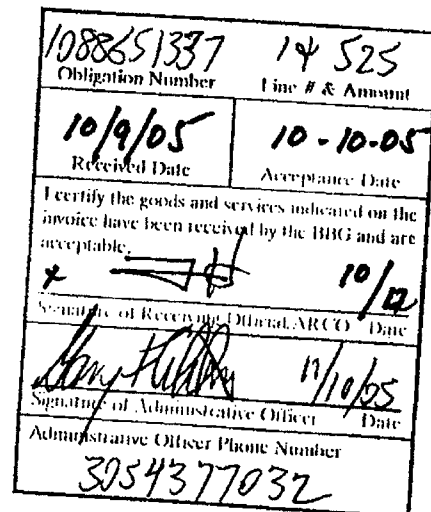 1088651337 1# 525
Obligation Number Line # & Amount
10/9/05 10-10-05
Received Date Acceptance Date
I certify the goods and services indicated on the
invoice have been received by the BBG and are
acceptable.
x 10/12
Signature of Receiving Official, ARCO Date
11/10/05
Signature of Administrative Officer Date
Administrative Officer Phone Number
3054377032